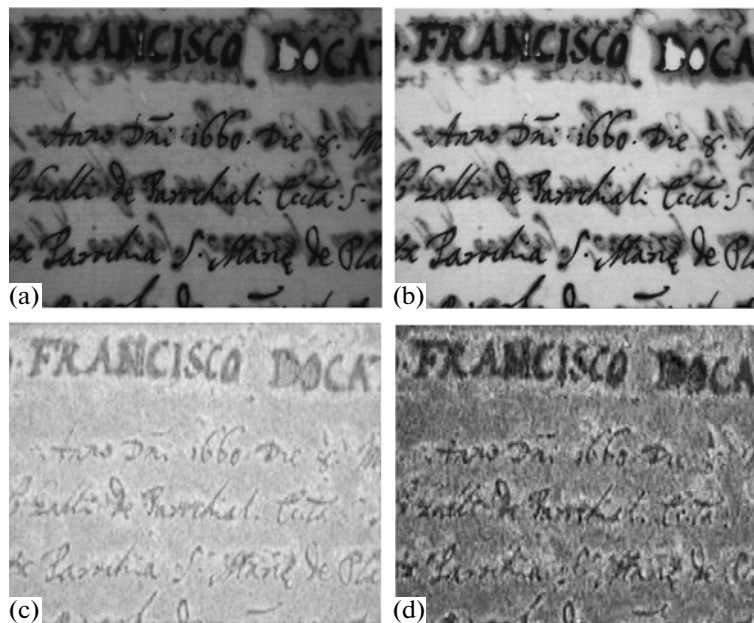 FRANCISCO DOCAT
Anno Dñi 1660. Die 8. M
Galli de Parrochiali S.
Parrochia S. Marię de Pla
(a)
FRANCISCO DOCAT
Anno Dñi 1660. Die 8. M
Galli de Parrochiali S.
Parrochia S. Marię de Pla
(b)
FRANCISCO DOCAT
Anno Dñi 1660. Die 8. M
Galli de Parrochiali
Parrochia S. Marię de Pla
(c)
FRANCISCO DOCA
Anno Dñi 1660. Die 8.
Galli de Parrochiali
Parrochia S. Marię de
(d)